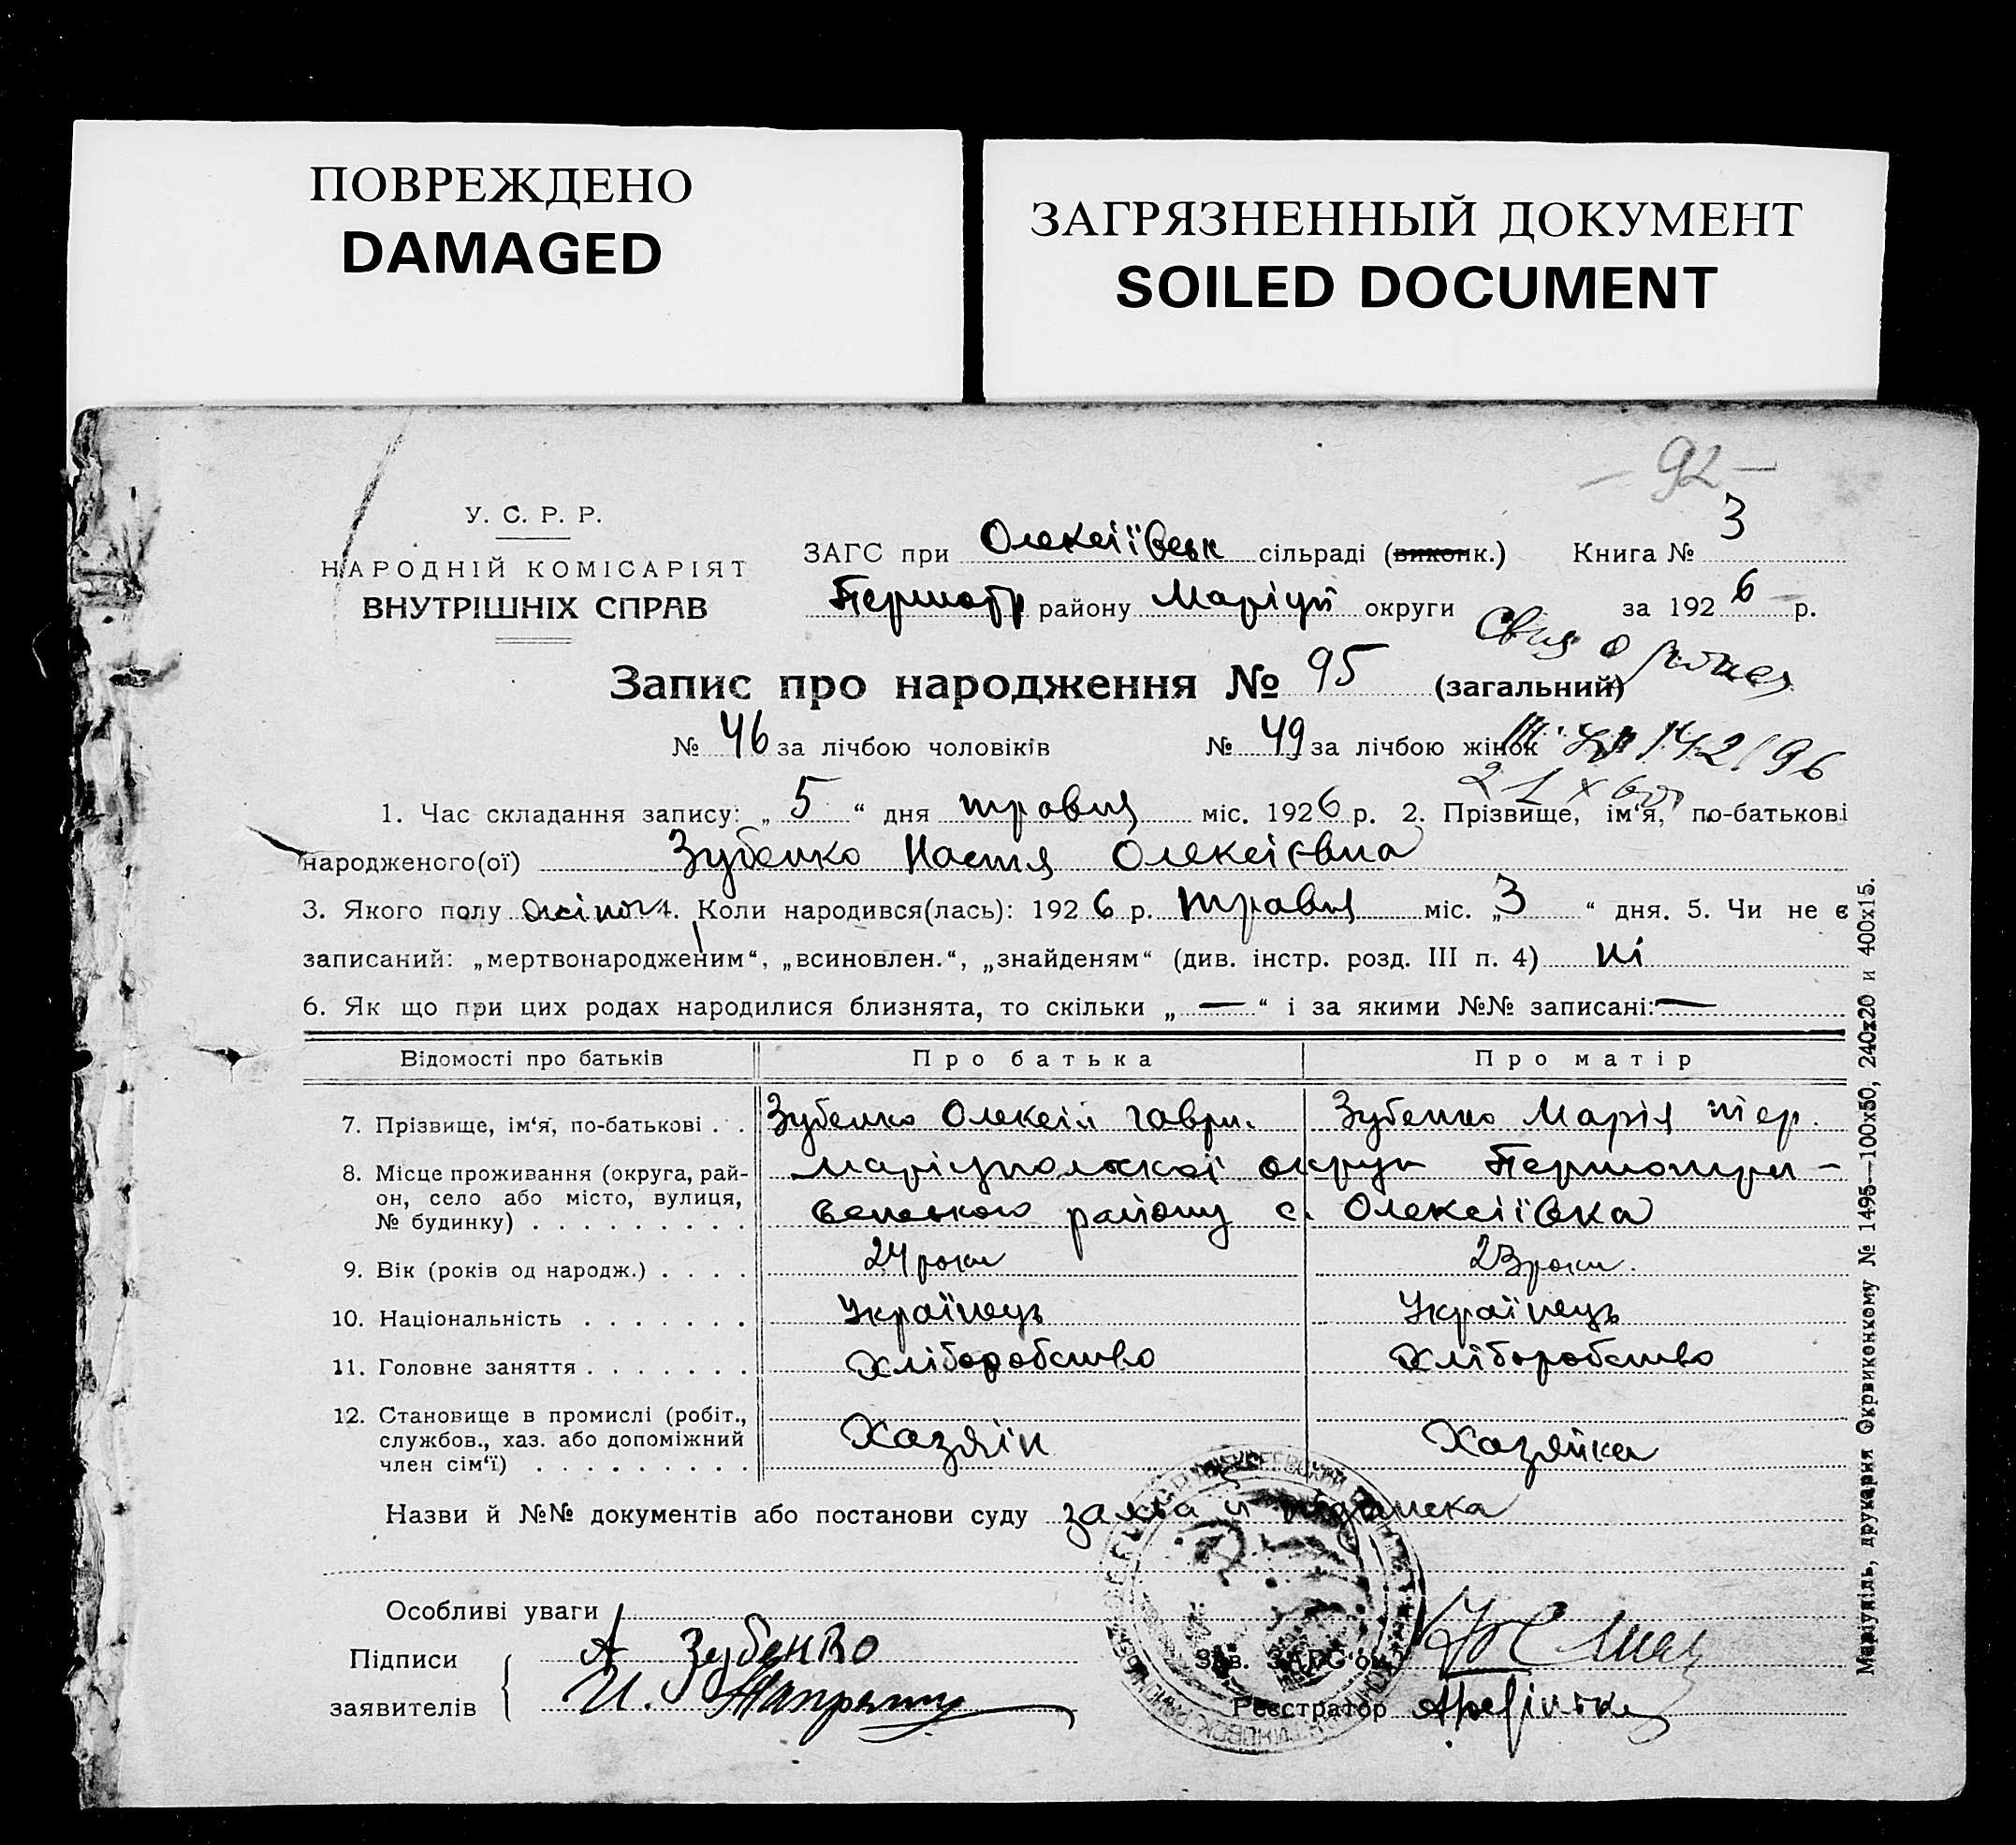 ПОВРЕЖДЕНО
DAMAGED
ЗАГРЯЗНЕННЫЙ ДОКУМЕНТ
SOILED DOCUMENT
— 92 —
У. С. Р. Р.
НАРОДНІЙ КОМІСАРІЯТ
ВНУТРІШНІХ СПРАВ
ЗАГС при Олексіївськ сільраді (виконк.) Книга № 3
Першотр району Маріуп округи за 1926 р.
Запис про народження № 95 (загальний)
№ 46 за лічбою чоловіків № 49 за лічбою жінок
1. Час складання запису: „5“ дня травня міс. 1926 р. 2. Прізвище, ім‘я, по-батькові
народженого(ої) Зубенко Настя Олексієвна
3. Якого полу жіноч 4. Коли народився(лась): 1926 р. травня міс. „3“ дня. 5. Чи не є
записаний: „мертвонародженим“, „всиновлен.“, „знайденям“ (див. інстр. розд. III п. 4) ні
6. Як що при цих родах народилися близнята, то скільки „—“ і за якими №№ записані: —
Відомості про батьків Про батька Про матір
7. Прізвище, ім‘я, по-батькові . . Зубенко Олексій Гаври. Зубенко Марія
8. Місце проживання (округа, рай-
он, село або місто, вулиця,
№ будинку) . . . . . . . . .
Маріупольскої округи Першотри-
венського району с. Олексіївка
9. Вік (років од народж.) . . . . 24 роки 23 роки.
10. Національність . . . . . . . Українець Українець
11. Головне заняття . . . . . . . Хліборобство Хліборобство
12. Становище в промислі (робіт.,
службов., хаз. або допоміжний
член сім‘ї) . . . . . . . . .
Хазяїн Хазяйка
Назви й №№ документів або постанови суду заява й підписка
Особливі уваги
Підписи
заявителів
А Зубенко
И.
Зав. ЗАГС‘ом
Реєстратор
Маріупіль, друкарня Окрвиконкому № 1495—100х50, 240х20 и 400х15.